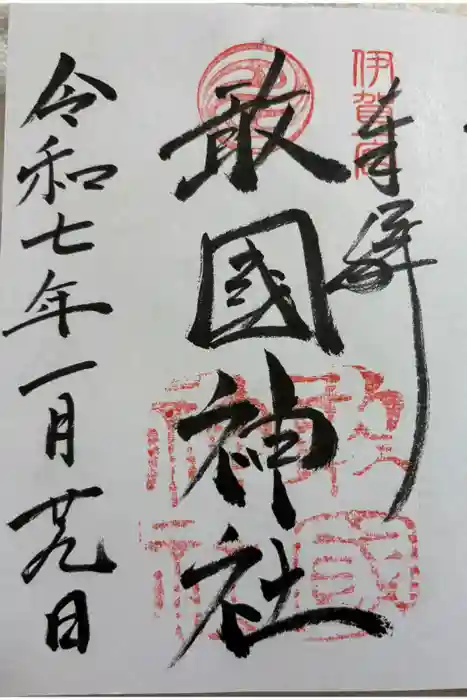 奉拝
伊賀一宮
敢國神社
敢國神社
令和七年一月廿九日